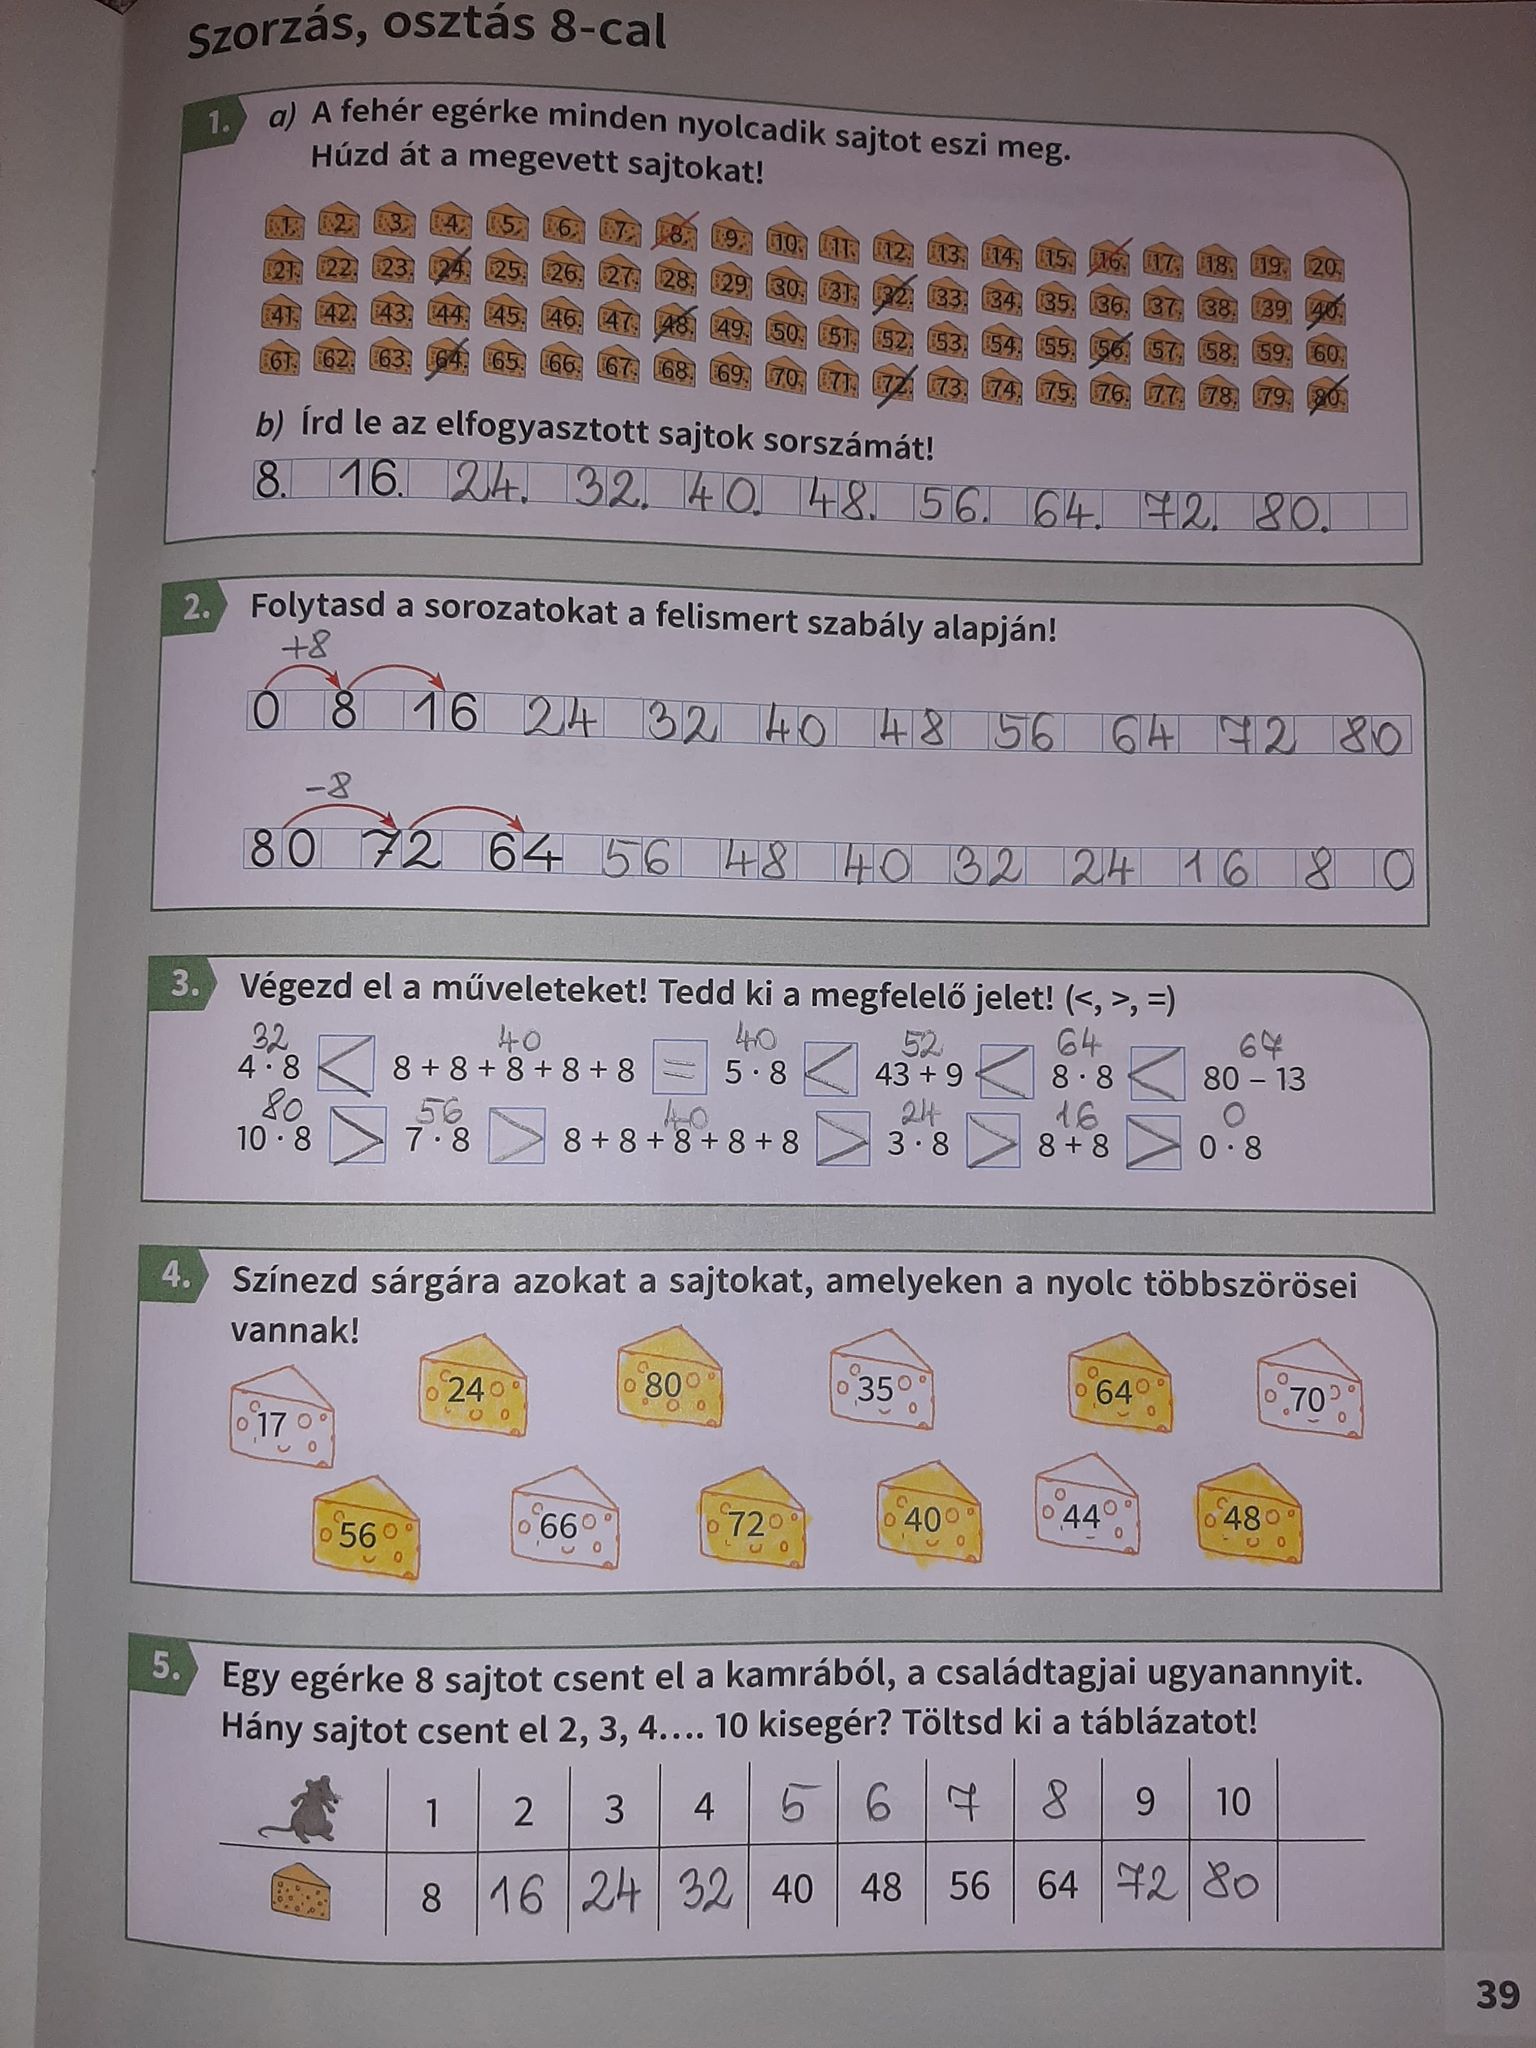 Szorzás, osztás 8-cal
1. a) A fehér egérke minden nyolcadik sajtot eszi meg.
Húzd át a megevett sajtokat!
1. 2. 3. 4. 5. 6. 7. 8. 9. 10. 11. 12. 13. 14. 15. 16. 17. 18. 19. 20.
21. 22. 23. 24. 25. 26. 27. 28. 29 30. 31. 32. 33. 34. 35. 36. 37. 38. 39 40.
41. 42. 43. 44. 45. 46. 47. 48. 49. 50. 51. 52. 53. 54. 55. 56. 57. 58. 59. 60.
61. 62. 63. 64. 65. 66. 67. 68. 69. 70. 71. 72. 73. 74. 75. 76. 77. 78. 79. 80.
b) Írd le az elfogyasztott sajtok sorszámát!
8. 16. 24. 32. 40. 48. 56. 64. 72. 80.
2. Folytasd a sorozatokat a felismert szabály alapján!
+8
0 8 16 24 32 40 48 56 64 72 80
-8
80 72 64 56 48 40 32 24 16 8 0
3. Végezd el a műveleteket! Tedd ki a megfelelő jelet! (<, >, =)
32 40 40 52 64 67
4 · 8 < 8 + 8 + 8 + 8 + 8 = 5 · 8 < 43 + 9 < 8 · 8 < 80 – 13
80 56 40 24 16 0
10 · 8 > 7 · 8 > 8 + 8 + 8 + 8 + 8 > 3 · 8 > 8 + 8 > 0 · 8
4. Színezd sárgára azokat a sajtokat, amelyeken a nyolc többszörösei
vannak!
17 24 80 35 64 70
56 66 72 40 44 48
5. Egy egérke 8 sajtot csent el a kamrából, a családtagjai ugyanannyit.
Hány sajtot csent el 2, 3, 4.... 10 kisegér? Töltsd ki a táblázatot!
1 2 3 4 5 6 7 8 9 10
8 16 24 32 40 48 56 64 72 80
39